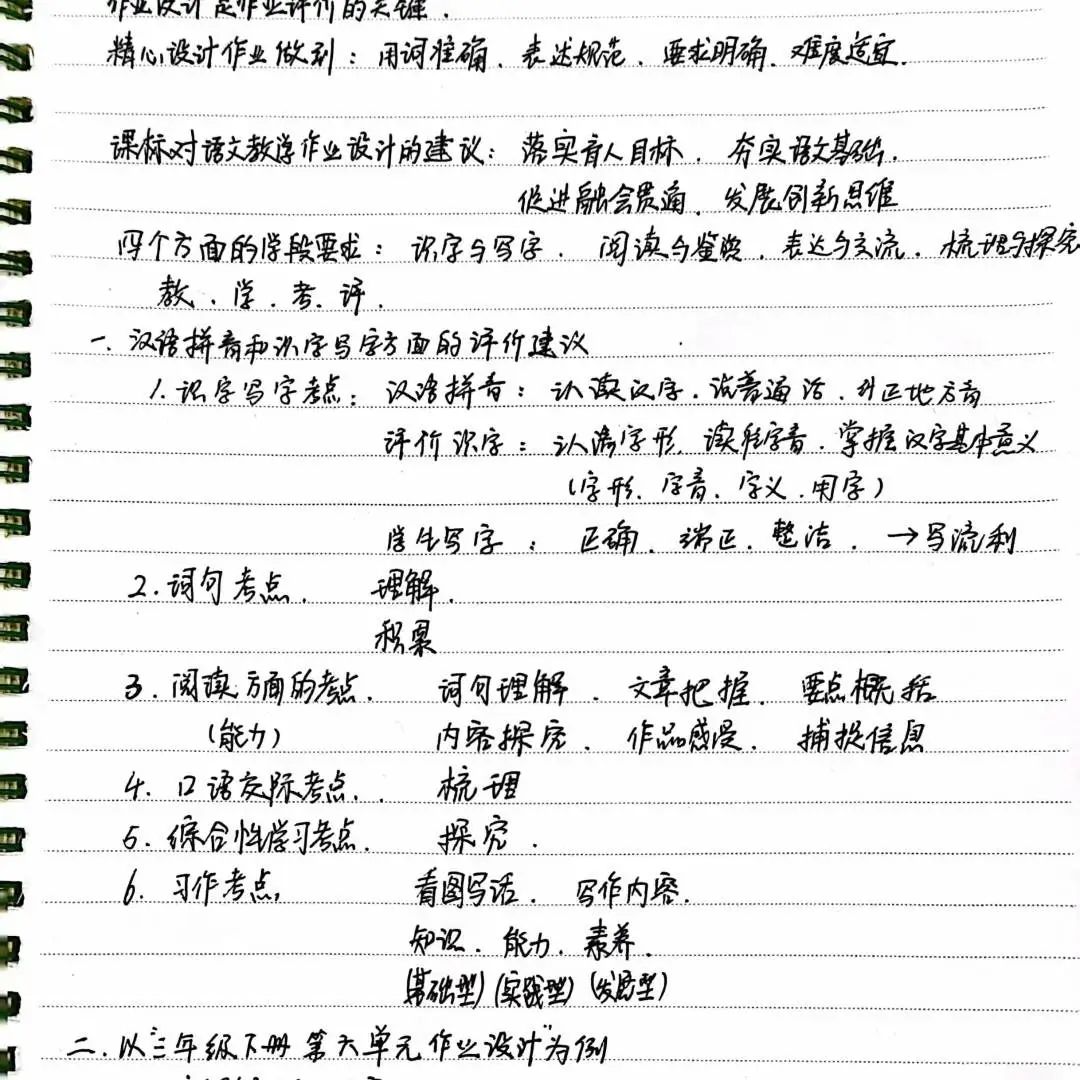 作业设计是作业评价的关键.
精心设计作业做到：用词准确、表达规范、要求明确、难度适宜.
课标对语文教学作业设计的建议：落实育人目标、夯实语文基础、
促进融会贯通、发展创新思维
四个方面的学段要求：识字与写字、阅读与鉴赏、表达与交流、梳理与探究
教、学、考、评.
一、汉语拼音和识字写字方面的评价建议
1.识字写字考点：汉语拼音：认读汉字、说普通话、纠正地方音
评价识字：认清字形、读准字音、掌握汉字基本意义
(字形、字音、字义、用字)
学生写字：正确、端正、整洁、→写流利
2.词句考点、 理解.
积累
3.阅读方面的考点. 词句理解、文章把握、要点概括
(能力) 内容探究、作品感受、捕捉信息
4.口语交际考点、 梳理
5.综合性学习考点. 探究.
6.习作考点, 看图写话、写作内容.
知识、能力、素养.
(基础型)(实践型)(发展型)
二.以"三年级下册第六单元作业设计"为例